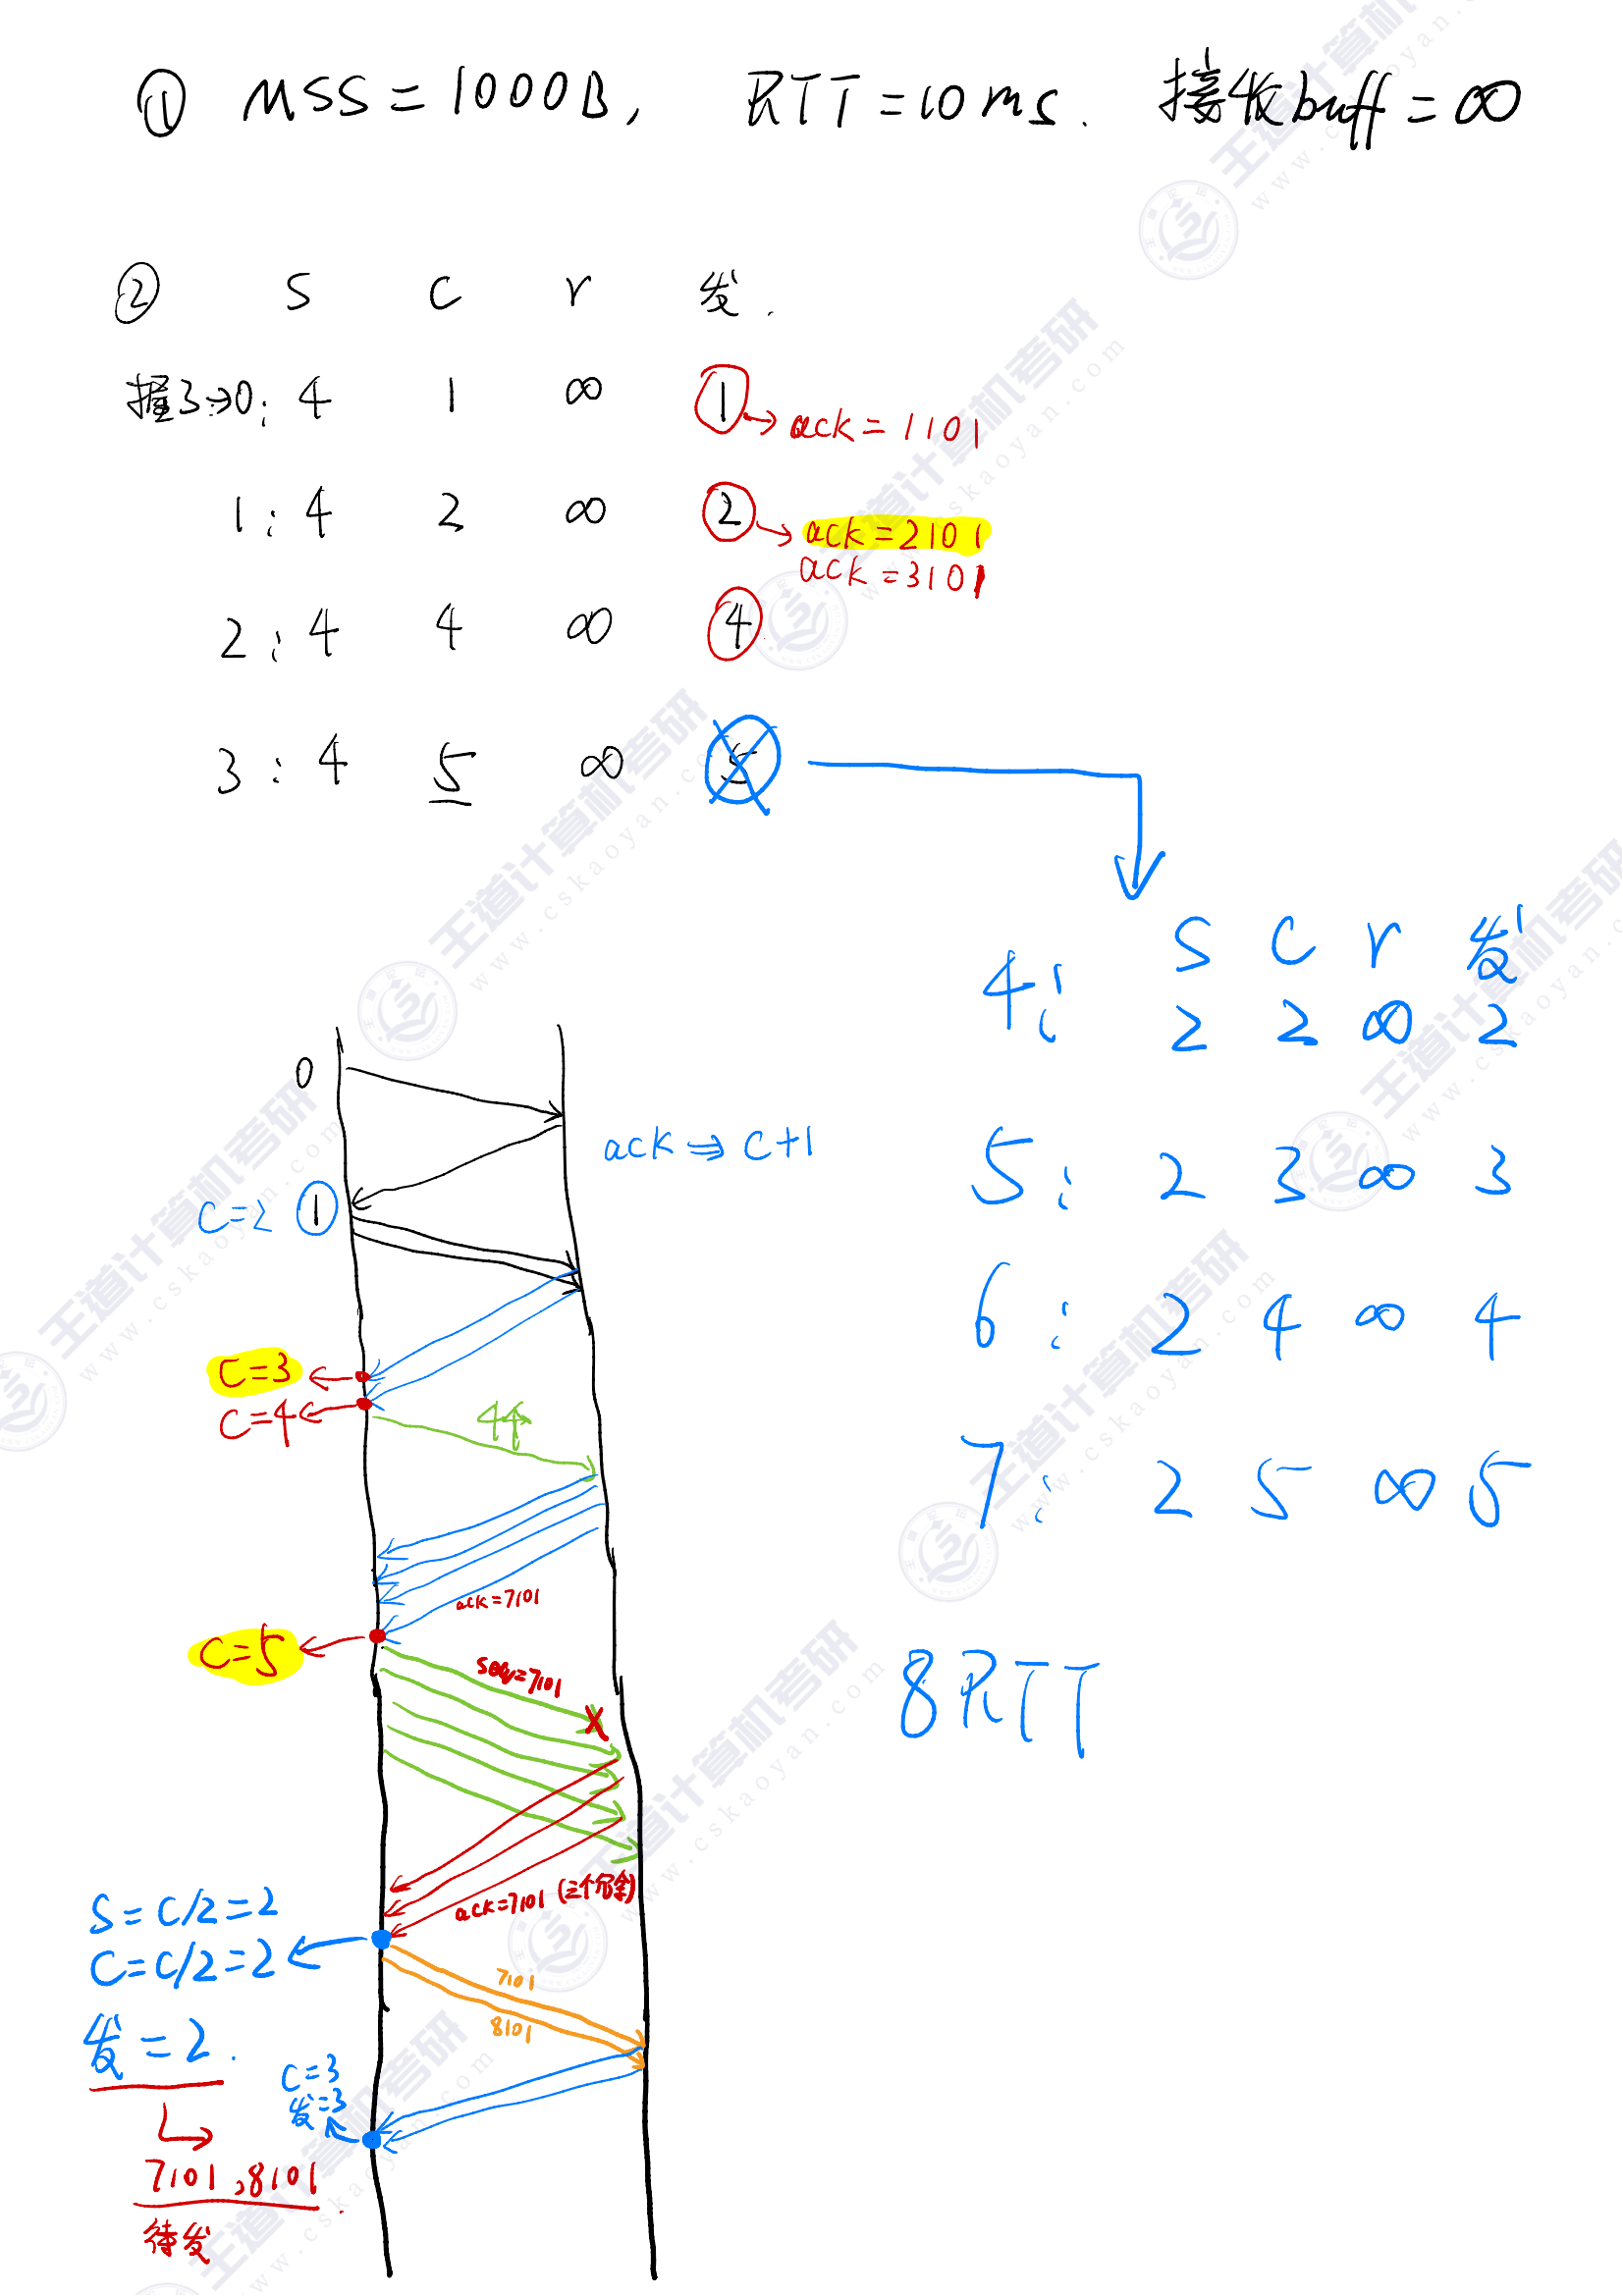 ① MSS=1000B, RTT=10ms. 接收buff=∞
② S C r 发.
握3→0: 4 1 ∞ ① → ack=1101
1: 4 2 ∞ ② → ack=2101
ack=3101
2: 4 4 ∞ ④
3: 4 5 ∞ 5
S C r 发
4: 2 2 ∞ 2
5: 2 3 ∞ 3
6: 2 4 ∞ 4
7: 2 5 ∞ 5
8RTT
0
ack ⇒ C+1
C=2 ①
C=3
C=4
4个
ack=7101
C=5
seq=7101
X
ack=7101 (三个冗余)
S=C/2=2
C=C/2=2
发=2.
7101
8101
C=3
发=3
7101,8101
待发
王道计算机考研
www.cskaoyan.com